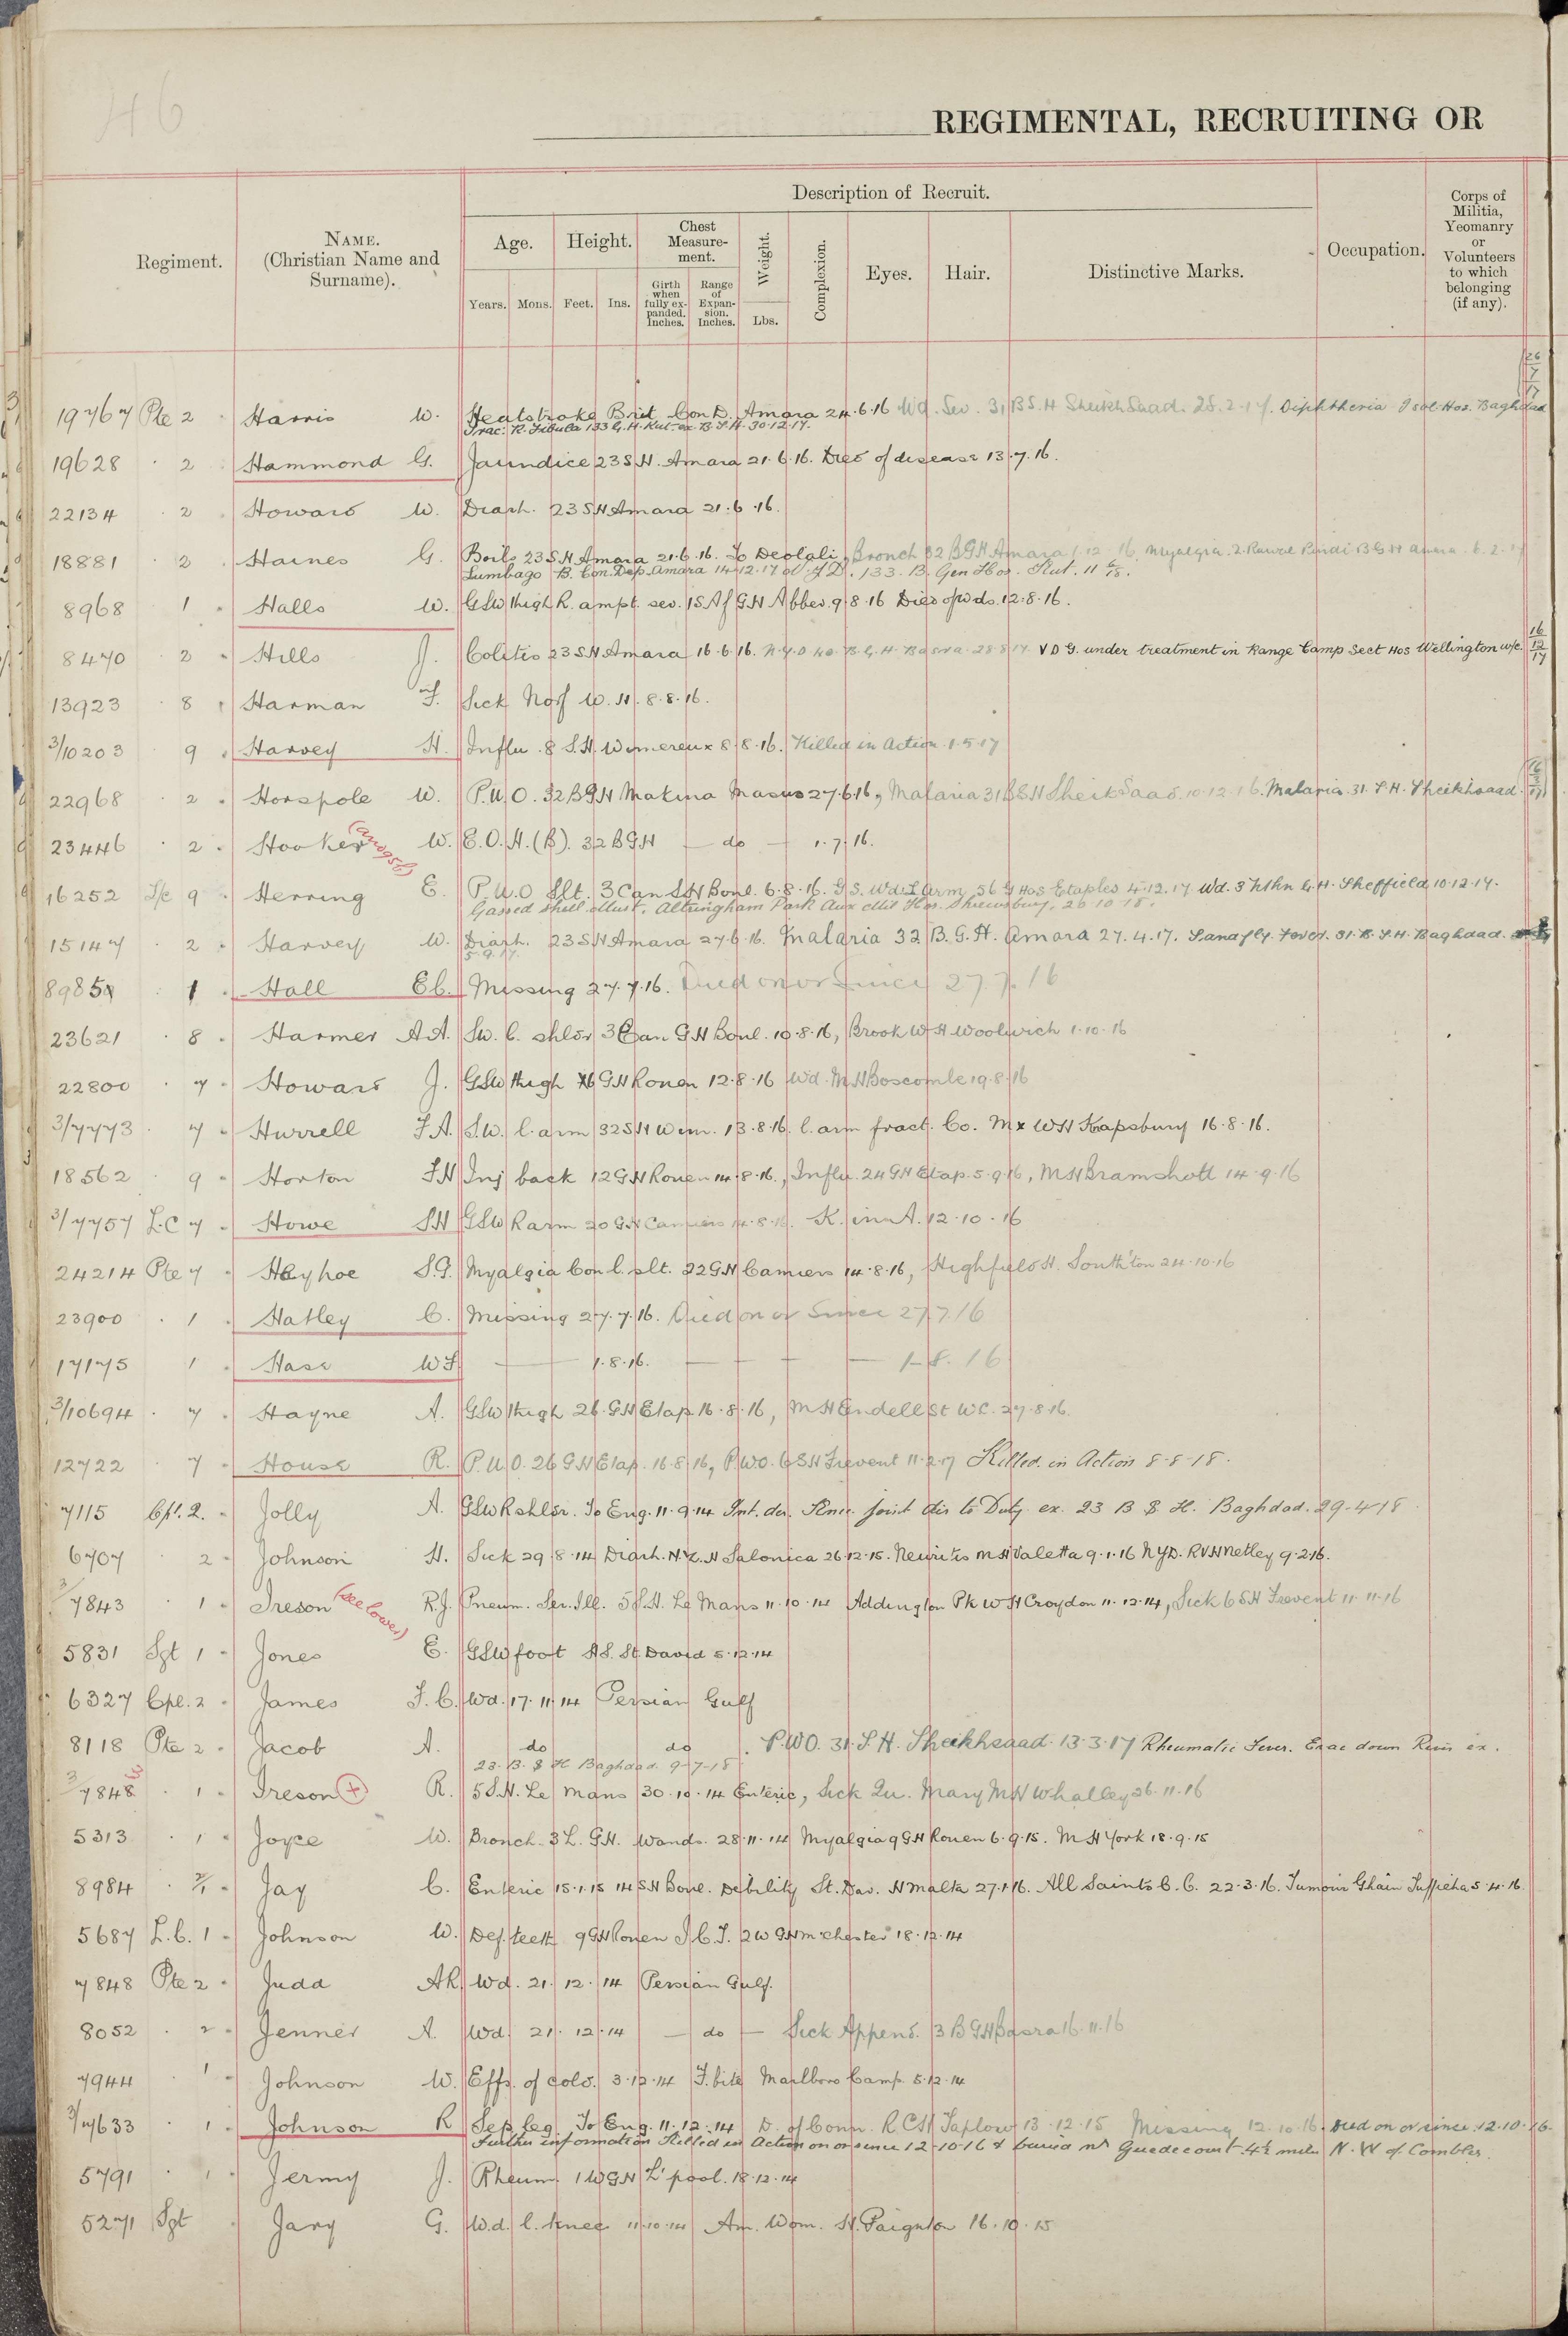 46
REGIMENTAL, RECRUITING OR
Description of Recruit.
Regiment.
NAME.
(Christian Name and
Surname).
Age.
Height.
Chest
Measure-
ment.
Weight.
Complexion.
Eyes.
Hair.
Distinctive Marks.
Occupation.
Corps of
Militia,
Yeomanry
or
Volunteers
to which
belonging
(if any).
Years.
Mons.
Feet.
Ins.
Girth
when
fully ex-
panded.
Inches.
Range
of
Expan-
sion.
Inches.
Lbs.
26
7
17
19767 Pte 2 Harris W. Heatstroke Brit Con D. Amara 24.6.16 Wd. Sev. 31 B S. H Sheikh Saad. 25.2.17. Diphtheria Isol. Hos. Baghdad
Frac. R. Fibula 133 G.H. Kut. ex B.S.H. 30.12.17.
19628 2 Hammond G. Jaundice 23 S.H. Amara 21.6.16. Died of disease 13.7.16.
22134 2 Howard W. Diarh. 23 S H Amara 21.6.16.
18881 2 Haines G. Boils 23 S.H Amara 21.6.16. To Deolali, Bronch 32 B G H Amara 1.12.16. Myalgia. 2 Rawal Pindi B G H Amara 6.2.17
Lumbago B. Con. Dep. Amara 14.12.17 133. B. Gen Hos. Kut. 11
8968 1 Halls W. GSW thigh R. ampt. sev. 1 S Af G.H Abbev. 9.8.16 Died of wds. 12.8.16.
8470 2 Hills J. Colitis 23 S H Amara 16.6.16. N.Y.D 40 B.G.H. Basra 28.8.17. V D G. under treatment in Range Camp Sect Hos Wellington w/e. 16/12/17
13923 8 Harman F. Sick Norf W. H. 8.8.16.
3/10203 9 Harvey H. Influ. 8 S.H. Wimereux 8.8.16. Killed in Action 1.5.17
22968 2 Horspole W. P.U.O. 32 B G H Makina Masus 27.6.16, Malaria 31 B S H Sheik Saad. 10.12.16. Malaria. 31. S.H. Sheikhsaad.
23446 2 Hooker W. E.O.H. (B). 32 B G H — do — 1.7.16.
16252 L/c 9 Herring E. P.U.O Slt. 3 Can S H Boul. 6.8.16. G S. Wd. L Arm 56 G Hos Etaples 4.12.17 Wd. 3 Nthn G. H. Sheffield 10.12.17.
Gassed Shell Must. Attringham Park Aux Mil Hos. Shrewsbury. 26.10.18.
15147 2 Harvey W. Diarh. 23 S H Amara 27.6.16. Malaria 32 B. G. H. Amara 27.4.17. Sandfly Fever. 31. B. S. H. Baghdad.
5.9.17.
8985 1 Hall Eb. Missing 27.7.16. Died on or Since 27.7.16
23621 8 Harmer A A. Sw. l. shldr 3 Can G H Boul. 10.8.16, Brook W H Woolwich 1.10.16
22800 7 Howard J. GSW thigh G H Rouen 12.8.16 Wd. M H Boscombe 19.8.16
3/7773 7 Hurrell F A. S.W. l. arm 32 S H Wim. 13.8.16. l. arm fract. Co. Mx W H Knapsbury 16.8.16.
18562 9 Horton F H Inj back 12 G H Rouen 14.8.16., Influ. 24 G H Etap. 5.9.16, M H Bramshott 14.9.16
3/7757 L.C 7 Howe S H GSW R arm 20 G H Camiers 14.8.16. K. in A. 12.10.16
24214 Pte 7 Hayhoe S.G. Myalgia Con l. slt. 22 G H Camiers 14.8.16, Highfield H. South'ton 24.10.16
23900 1 Hatley C. Missing 27.7.16. Died on or Since 27.7.16
17175 1 Hase W F — 1.8.16. — — — 1-8.16
3/10694 7 Hayne A. GSW thigh 26. G H Etap 16.8.16, M H Endell St W C. 27.8.16.
12722 7 House R. P.U.O. 26 G H Etap. 16.8.16, P.U.O. 6 S H Frevent 11.2.17 Killed in Action 8-8-18.
7115 Cpl. 2. Jolly A. GSW R shldr. To Eng. 11.9.14 Int. der. Knee joint dis to Duty ex. 23 B S. H. Baghdad. 29-4-18
6707 2 Johnson H. Sick 29.8.14 Diarh. N.Z. H Salonica 26.12.15. Neuritis M H Valetta 9.1.16 N Y D. R V H Netley 9.2.16.
3/7843 1 Ireson (see lower) R.J. Pneum. Ser. Ill. 5 S.H. Le Mans 11.10.14 Addington Pk W H Croydon 11.12.14, Sick 6 S H Frevent 11.11.16
5831 Sgt 1 Jones E. GSW foot H S. St David 5.12.14
6327 Cpl. 2 James F. C. Wd. 17.11.14 Persian Gulf
8118 Pte 2 Jacob A. do do P.U.O. 31. S. H. Sheikhsaad. 13.3.17 Rheumatic Fever. Evac down River ex.
23. B. S H Baghdad 9-7-18
3/7848 1 Ireson R. 5 S.H. Le Mans 30.10.14 Enteric, Sick Qu. Mary M H Whalley 26.11.16
5313 1 Joyce W. Bronch. 3 L. G.H. Wands. 28.11.14 Myalgia 9 G H Rouen 6.9.15. M H York 18.9.15
8984 2/1 Jay C. Enteric 15.1.15 14 S H Boul. Debility St. Dav. H Malta 27.1.16. All Saints C. C. 22.3.16. Tumour Ghain Tuffieha 5.4.16
5687 L.C. 1 Johnson W. Def. teeth 9 G H Rouen I.C.T. 2 W G H M'chester 18.12.14
7848 Pte 2 Judd A R. Wd. 21.12.14 Persian Gulf.
8052 2 Jenner A. Wd. 21.12.14 — do — Sick Append. 3 B G H Basra 16.11.16
7944 1 Johnson W. Effs. of cold. 3.12.14 F. bite Marlboro Camp. 5.12.14
3/7633 1 Johnson R Sep leg. To Eng. 11.12.14 D. of Conn. R C H Taplow 13.12.15 Missing 12.10.16. Died on or since 12.10.16.
Further information Killed in Action on or since 12-10-16 & buried nr Guedecourt 4½ miles N. W of Combles.
5791 1 Jermy J. Rheum. 1 W G H L'pool. 18.12.14
5271 Sgt Jary G. Wd. l. knee 11.10.14 Am. Wom. H. Paignton 16.10.15